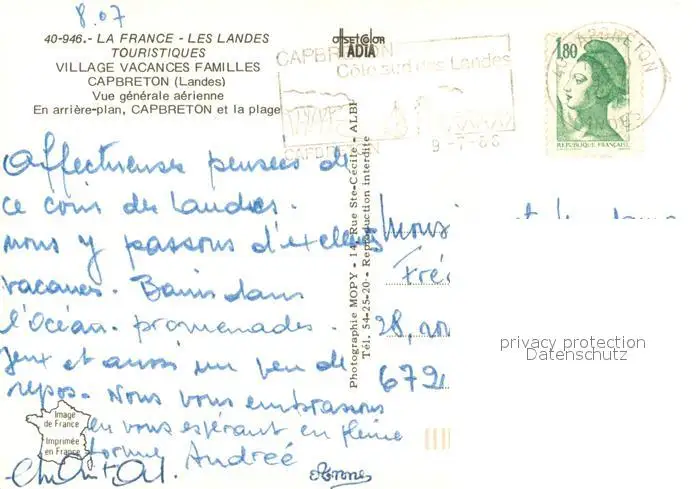 8.07
40-946.- LA FRANCE - LES LANDES
TOURISTIQUES
VILLAGE VACANCES FAMILLES
CAPBRETON (Landes)
Vue générale aérienne
En arrière-plan, CAPBRETON et la plage
OFFSETCOLOR
ADIA
CAPBRETON
Côte sud des Landes
CAPBRETON
9-7-86
CAPBRETON
1,80
REPUBLIQUE FRANÇAISE
Affectueuses pensées de
ce coin des Landes.
nous y passons d'excellentes
vacances. Bains dans
l'Océan. promenades.
Jeux et aussi un peu de
repos. Nous vous embrassons
en vous espérant en pleine
forme Andrée
Image
de France
Imprimée
en France
Photographie MOPY - 14, Rue Ste-Cécile - ALBI
Tél. 54-25-20 - Reproduction interdite
28,
privacy protection
Datenschutz